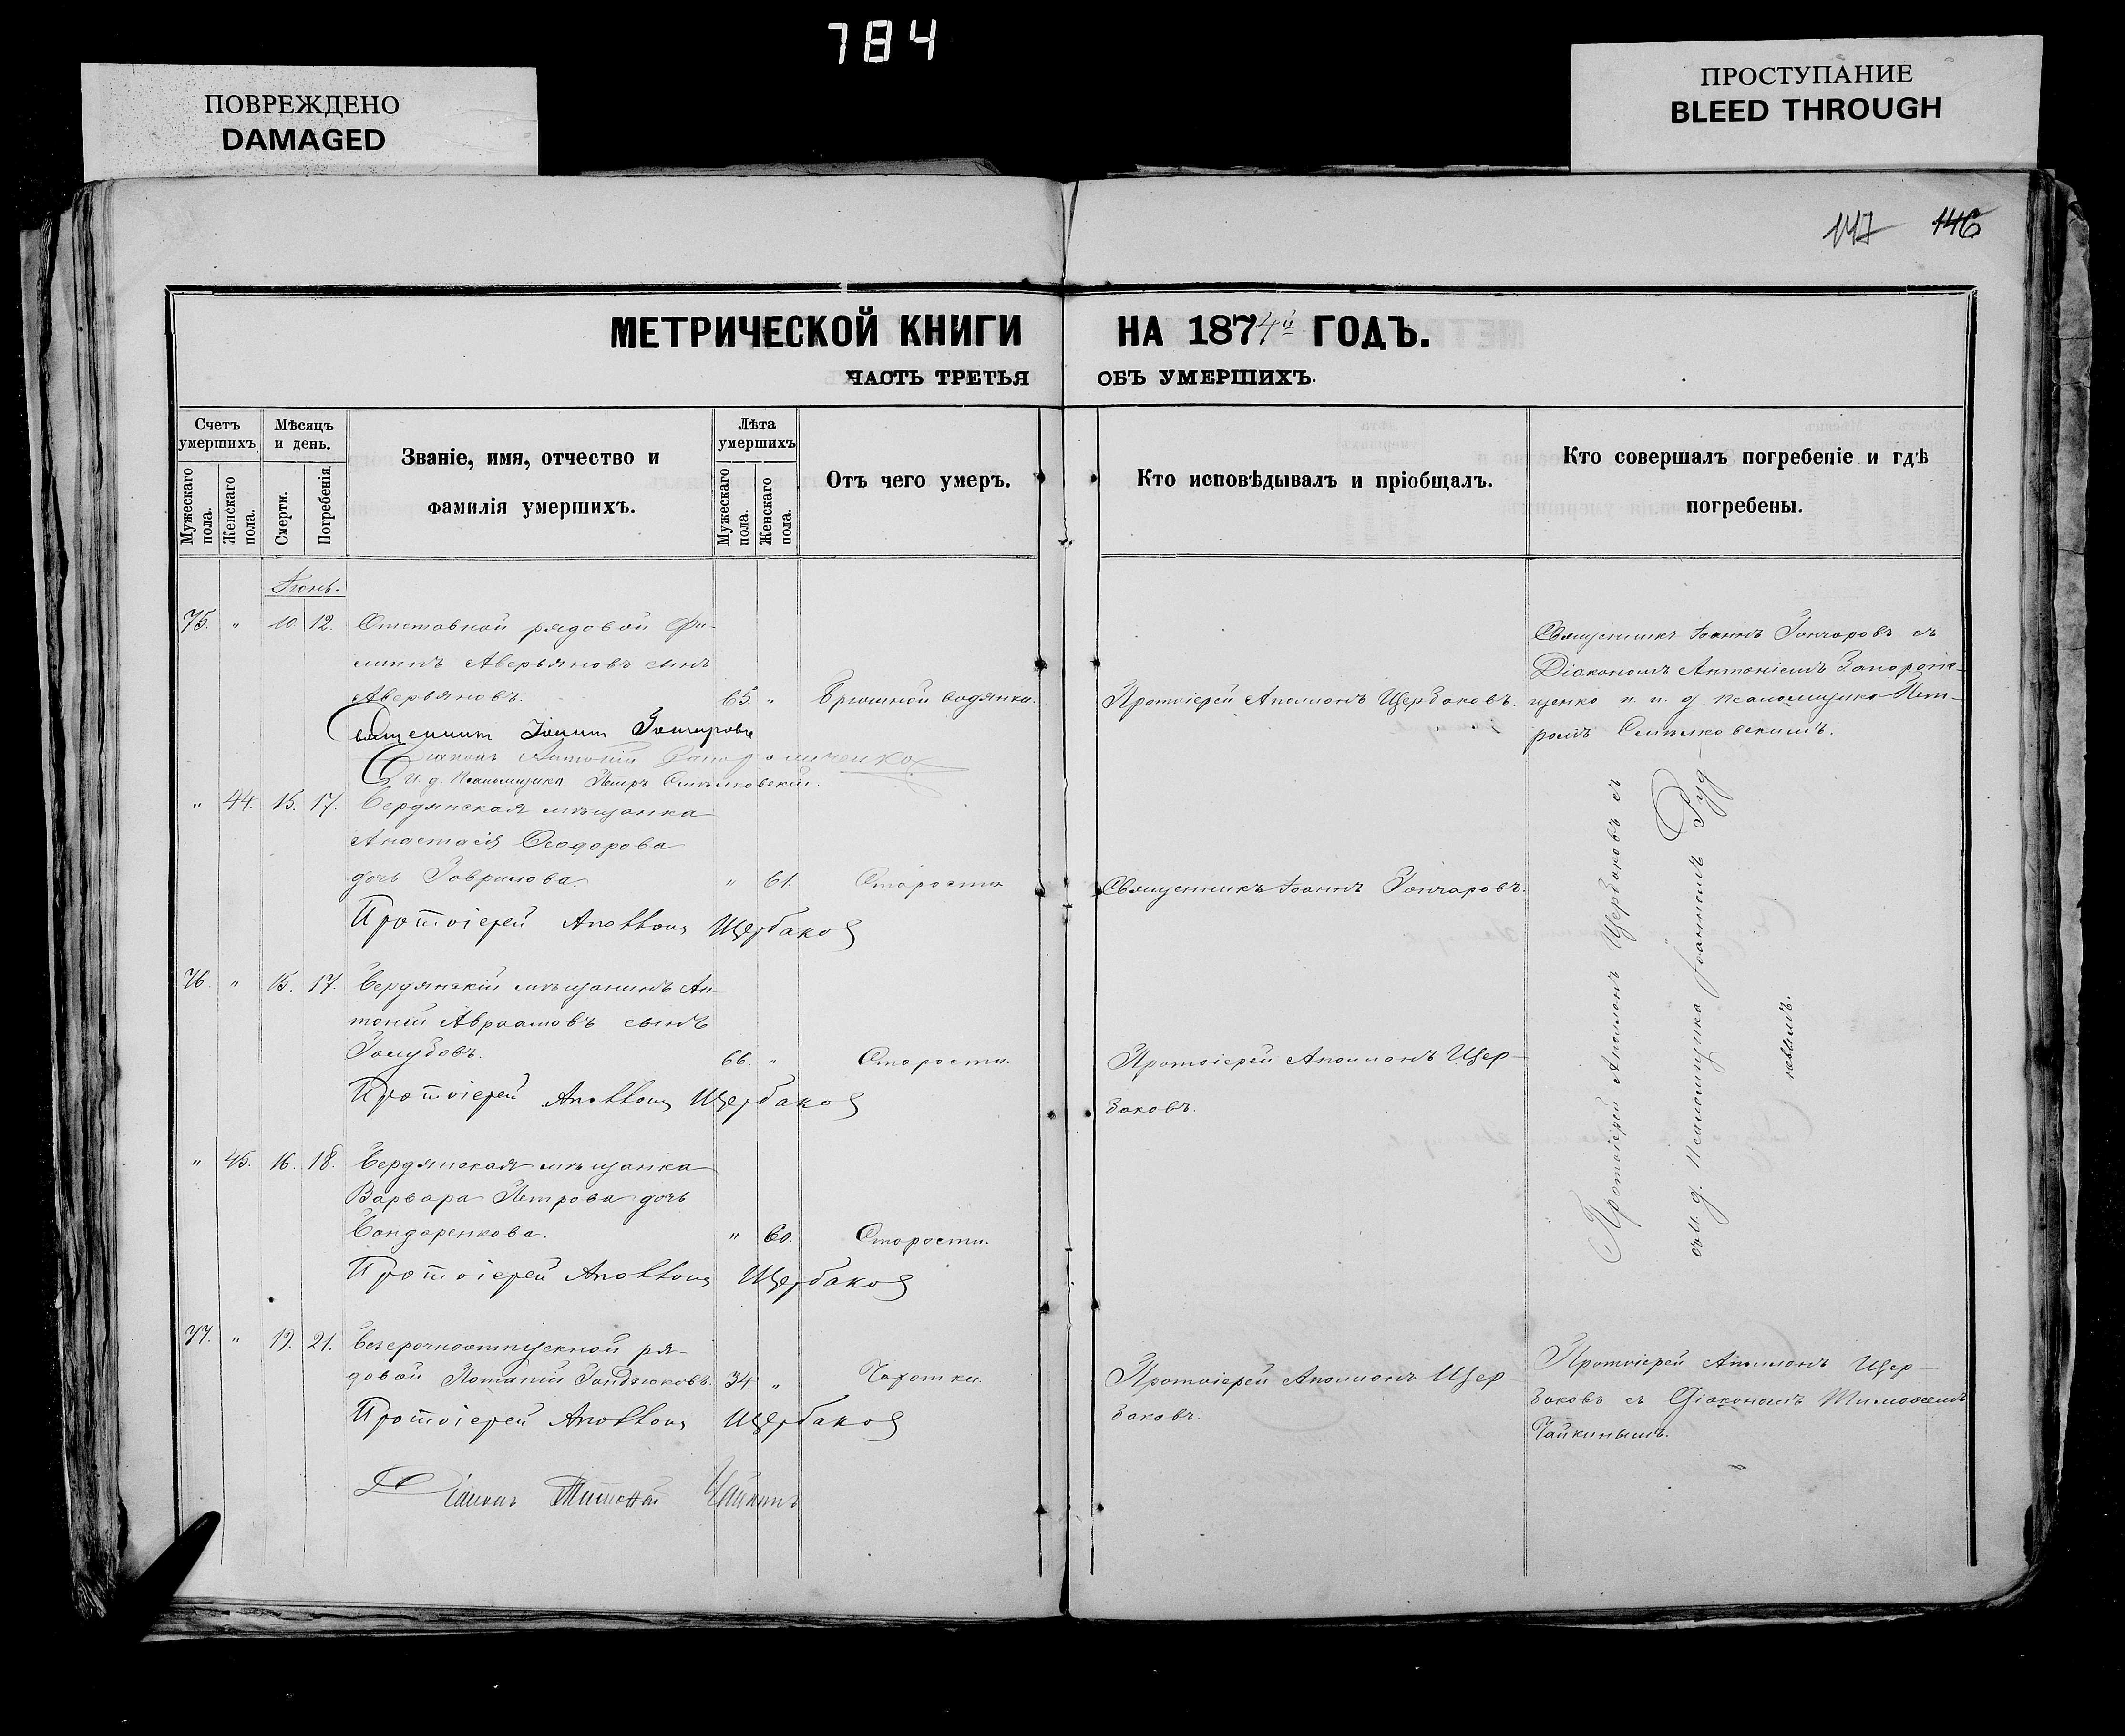 784
ПОВРЕЖДЕНО
DAMAGED
ПРОСТУПАНИЕ
BLEED THROUGH
147 146
МЕТРИЧЕСКОЙ КНИГИ НА 1874й ГОДЪ.
ЧАСТЬ ТРЕТЬЯ ОБЪ УМЕРШИХЪ.
Счетъ умершихъ
Мужескаго пола.
Женскаго пола.
Мѣсяцъ и день.
Смерти.
Погребенія
Званіе, имя, отчество и
фамилія умершихъ.
Лѣта умершихъ
Мужескаго пола.
Женскаго пола.
Отъ чего умеръ.
Кто исповѣдывалъ и пріобщалъ.
Кто совершалъ погребеніе и гдѣ
погребены.
Іюнь.
75. " 10 12. Отставной рядовой Фи-
липъ Аверьяновъ сынъ
Аверьяновъ. 65. " Брюшной водянки.
Протоіерей Аполлонъ Щербаковъ.
Священникъ Іоаннъ Гончаровъ съ
Діакономъ Антоніемъ Запорож-
ченко и и. д. псаломщика Пет-
ромъ
Священникъ Іоаннъ Гончаровъ
Діаконъ Антоній Запорожченко
И д. Псаломщика Петръ
" 44. 15. 17. Бердянская мѣщанка
Анастасія Ѳеодорова
дочь Гаврилова. " 61. Старости
Священникъ Іоаннъ Гончаровъ.
Протоіерей Аполлонъ Щербаковъ
76. " 15. 17. Бердянскій мѣщанинъ Ан-
тоній Авраамовъ сынъ
Голубовъ. 66. " Старости.
Протоіерей Аполлонъ Щер-
баковъ.
Протоіерей Аполлонъ Щербаковъ
" 45. 16. 18. Бердянская мѣщанка
Варвара Петрова дочь
Бондаренкова. " 60. Старости.
Протоіерей Аполлонъ Щербаковъ
Протоіерей Аполлонъ Щербаковъ съ
и. д. псаломщика Іоанномъ Руд-
невымъ.
77. " 19. 21. Безсрочноотпускной ря-
довой Потапій 34. " Чахотки.
Протоіерей Аполлонъ Щер-
баковъ.
Протоіерей Аполлонъ Щер-
баковъ съ Діакономъ Тимоѳеемъ
Чайкинымъ.
Протоіерей Аполлонъ Щербаковъ
Діаконъ Тимоѳей Чайкинъ